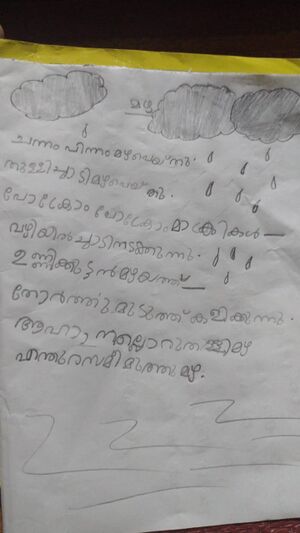 മഴ
ചന്നം പിന്നം മഴപെയ്തു.
തുള്ളിച്ചാടിമഴപെയ്തു.
പോക്രോം പോക്രോംമാക്രികൾ
വഴിയിൽചാടിനടക്കുന്നു.
ഉണ്ണിക്കുട്ടൻമഴയത്ത്
തോർത്തുമുടുത്ത് കളിക്കുന്നു.
ആഹാ, നല്ലൊരു
എന്തുരസമീമുത്തുമഴ.